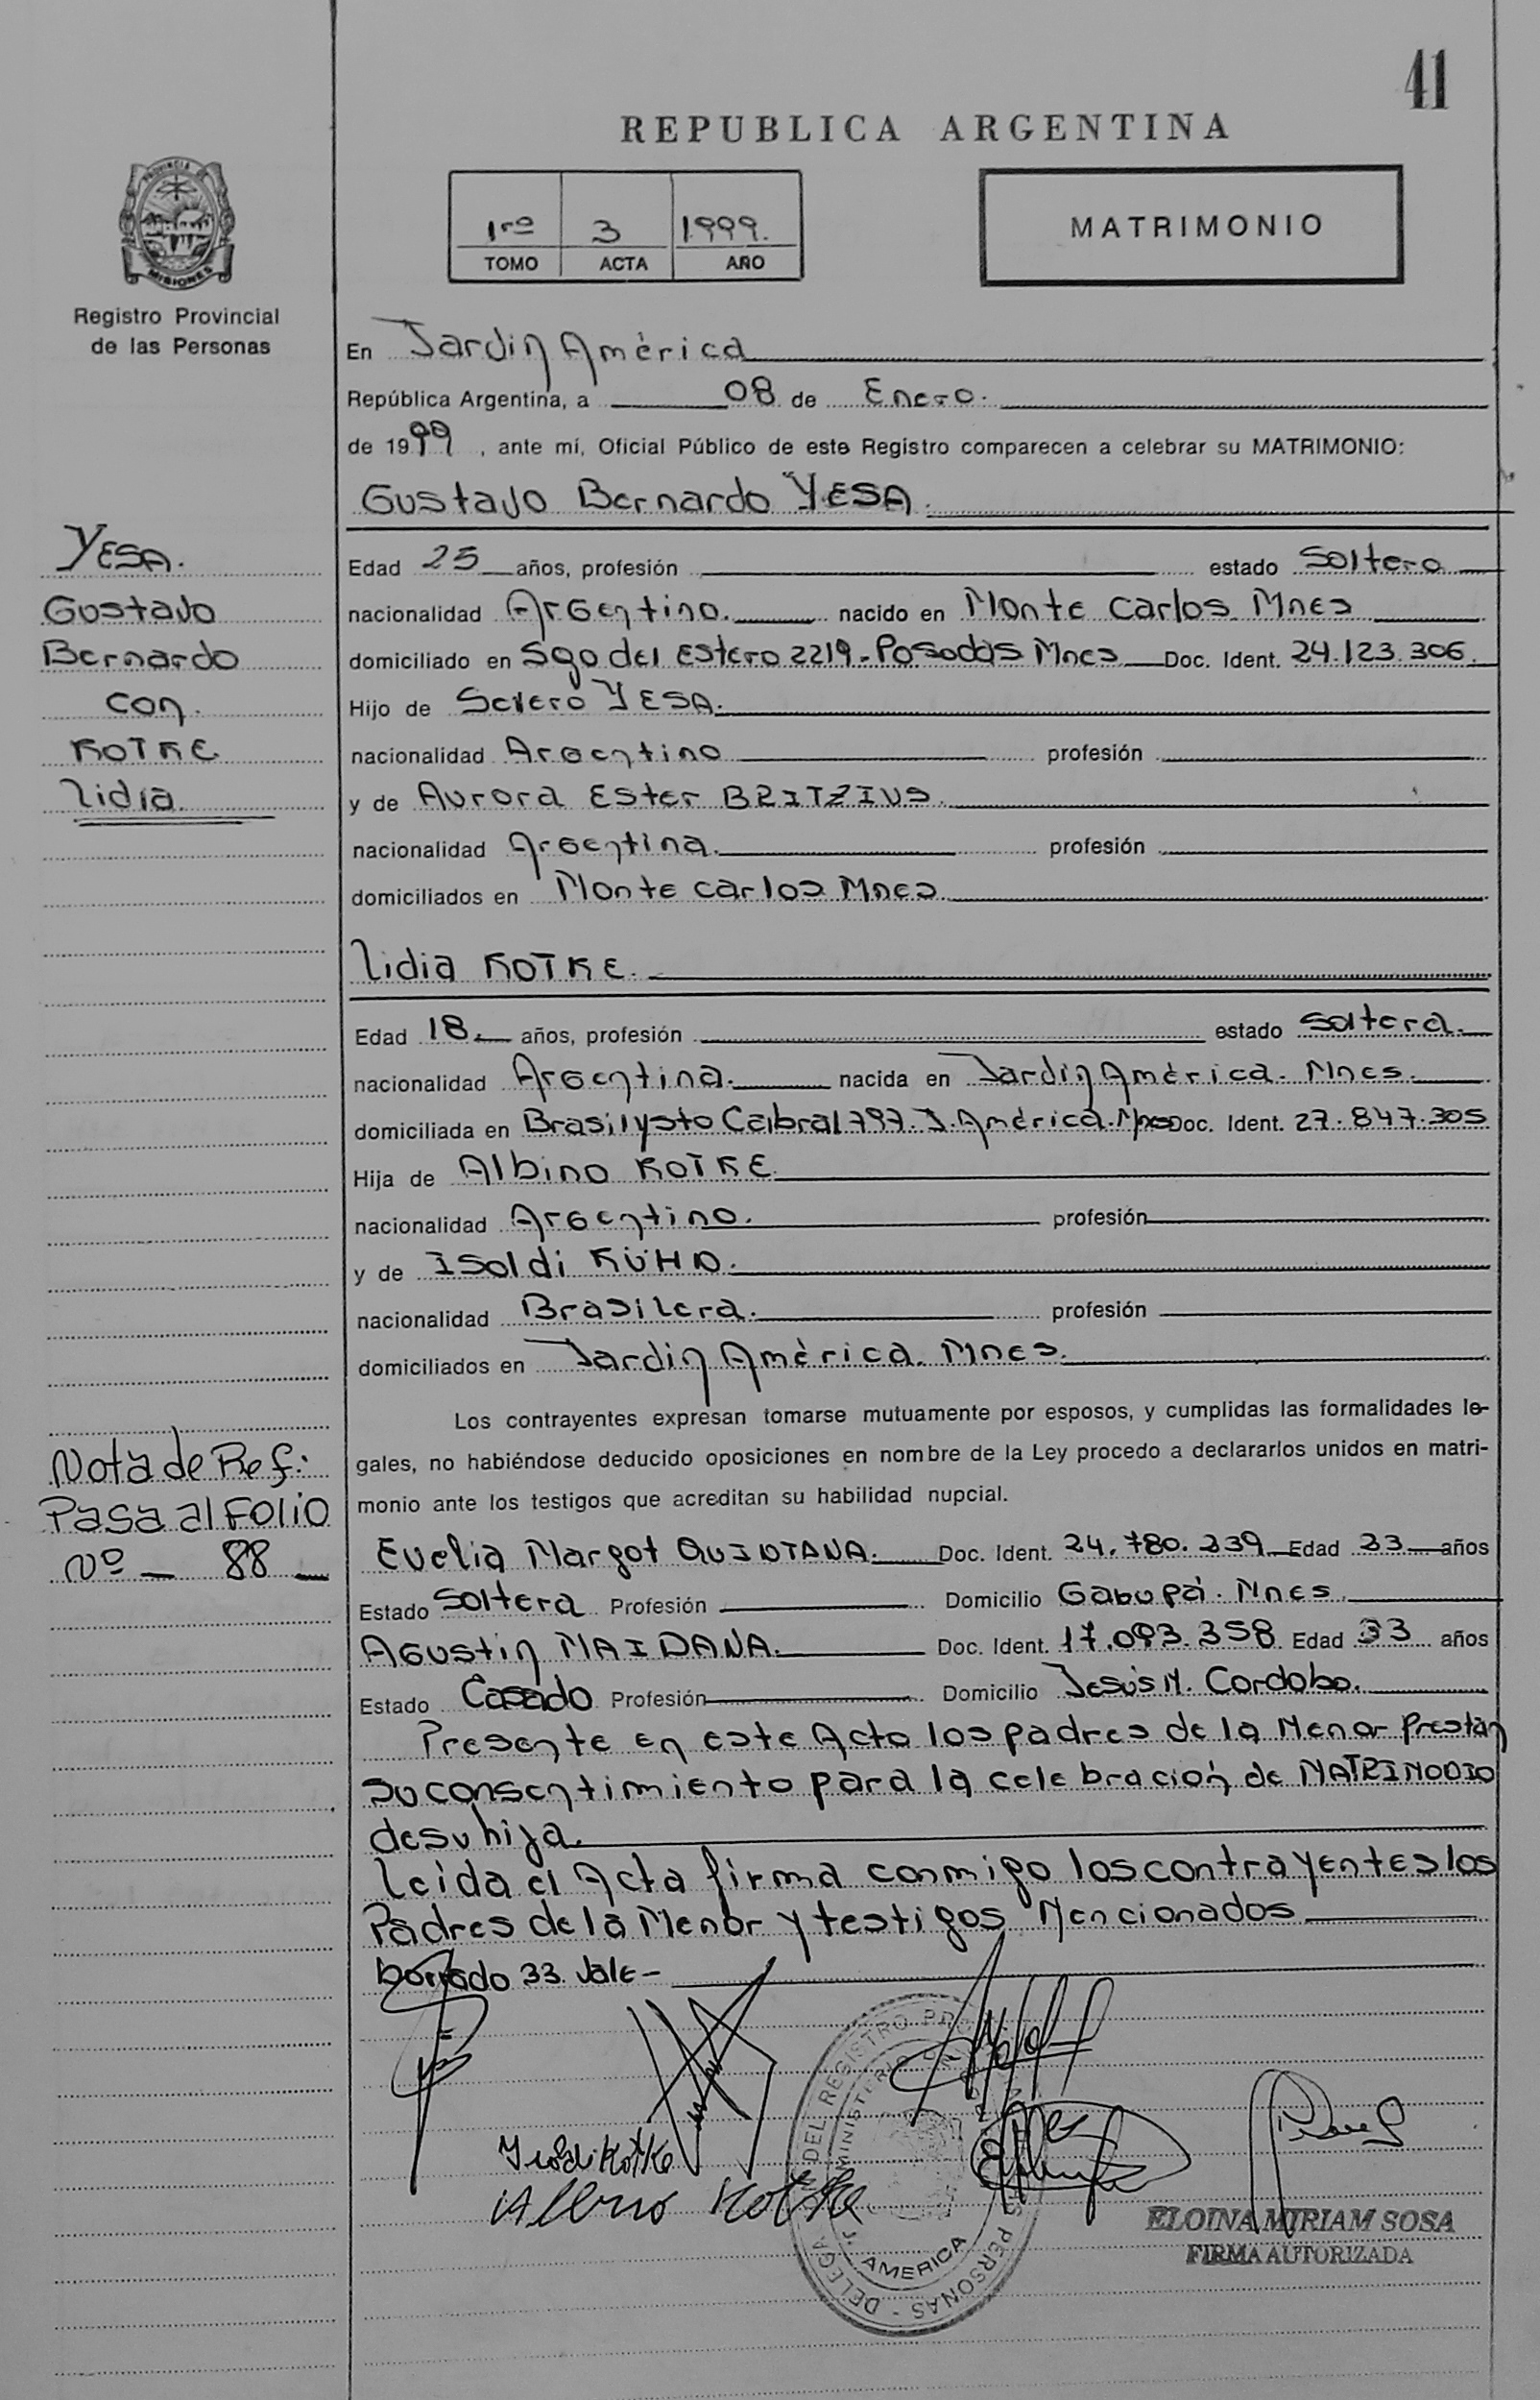 41
REPUBLICA ARGENTINA
PROVINCIA DE
MISIONES
Registro Provincial
de las Personas
1ro 3 1999.
TOMO ACTA AÑO
MATRIMONIO
En Jardin América
República Argentina, a 08 de Enero.
de 1999, ante mí, Oficial Público de este Registro comparecen a celebrar su MATRIMONIO:
Gustavo Bernardo YESA.
YESA.
Gustavo
Bernardo
con.
KOTKE
Lidia.
Edad 25 años, profesión estado Soltero
nacionalidad Argentino. nacido en Monte Carlos Mnes
domiciliado en Sgo del Estero 2219. Posadas Mnes Doc. Ident. 24.123.306.
Hijo de Severo YESA.
nacionalidad Argentino profesión
y de Aurora Ester BRITZIUS.
nacionalidad Argentina. profesión
domiciliados en Monte Carlos Mnes.
Lidia KOTKE.
Edad 18. años, profesión estado Soltera.
nacionalidad Argentina. nacida en Jardin América. Mnes.
domiciliada en Brasil y sto Cabral 797. J. América. Mnes Doc. Ident. 27.847.305
Hija de Albino KOTKE
nacionalidad Argentino. profesión
y de Isoldi KÜHN.
nacionalidad Brasilera. profesión
domiciliados en Jardin América. Mnes.
Los contrayentes expresan tomarse mutuamente por esposos, y cumplidas las formalidades le-
gales, no habiéndose deducido oposiciones en nombre de la Ley procedo a declararlos unidos en matri-
monio ante los testigos que acreditan su habilidad nupcial.
Nota de Ref:
Pasa al Folio
Nº - 88 -
Evelia Margot QUINTANA. Doc. Ident. 24.780.239 Edad 23 años
Estado Soltera Profesión Domicilio Garupá. Mnes.
Agustin MAIDANA. Doc. Ident. 17.093.358 Edad 33 años
Estado Casado Profesión Domicilio Jesús M. Cordoba.
Presente en este Acto los padres de la Menor prestan
su consentimiento para la celebración de MATRIMONIO
de su hija.
Leida el Acta firma conmigo los contrayentes los
Padres de la Menor y testigos Mencionados
borrado 33. Vale-
Isoldi Kotke
Albino Kotke
DELEGA DEL REGISTRO PERSONAS
MINISTERIO
J. AMERICA
ELOINA MIRIAM SOSA
FIRMA AUTORIZADA